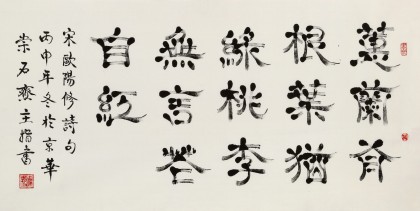 蕙蘭有
根葉猶
綠桃李
無言花
自紅
宋歐陽修詩句
丙申年冬於京華
崇石齋主指書